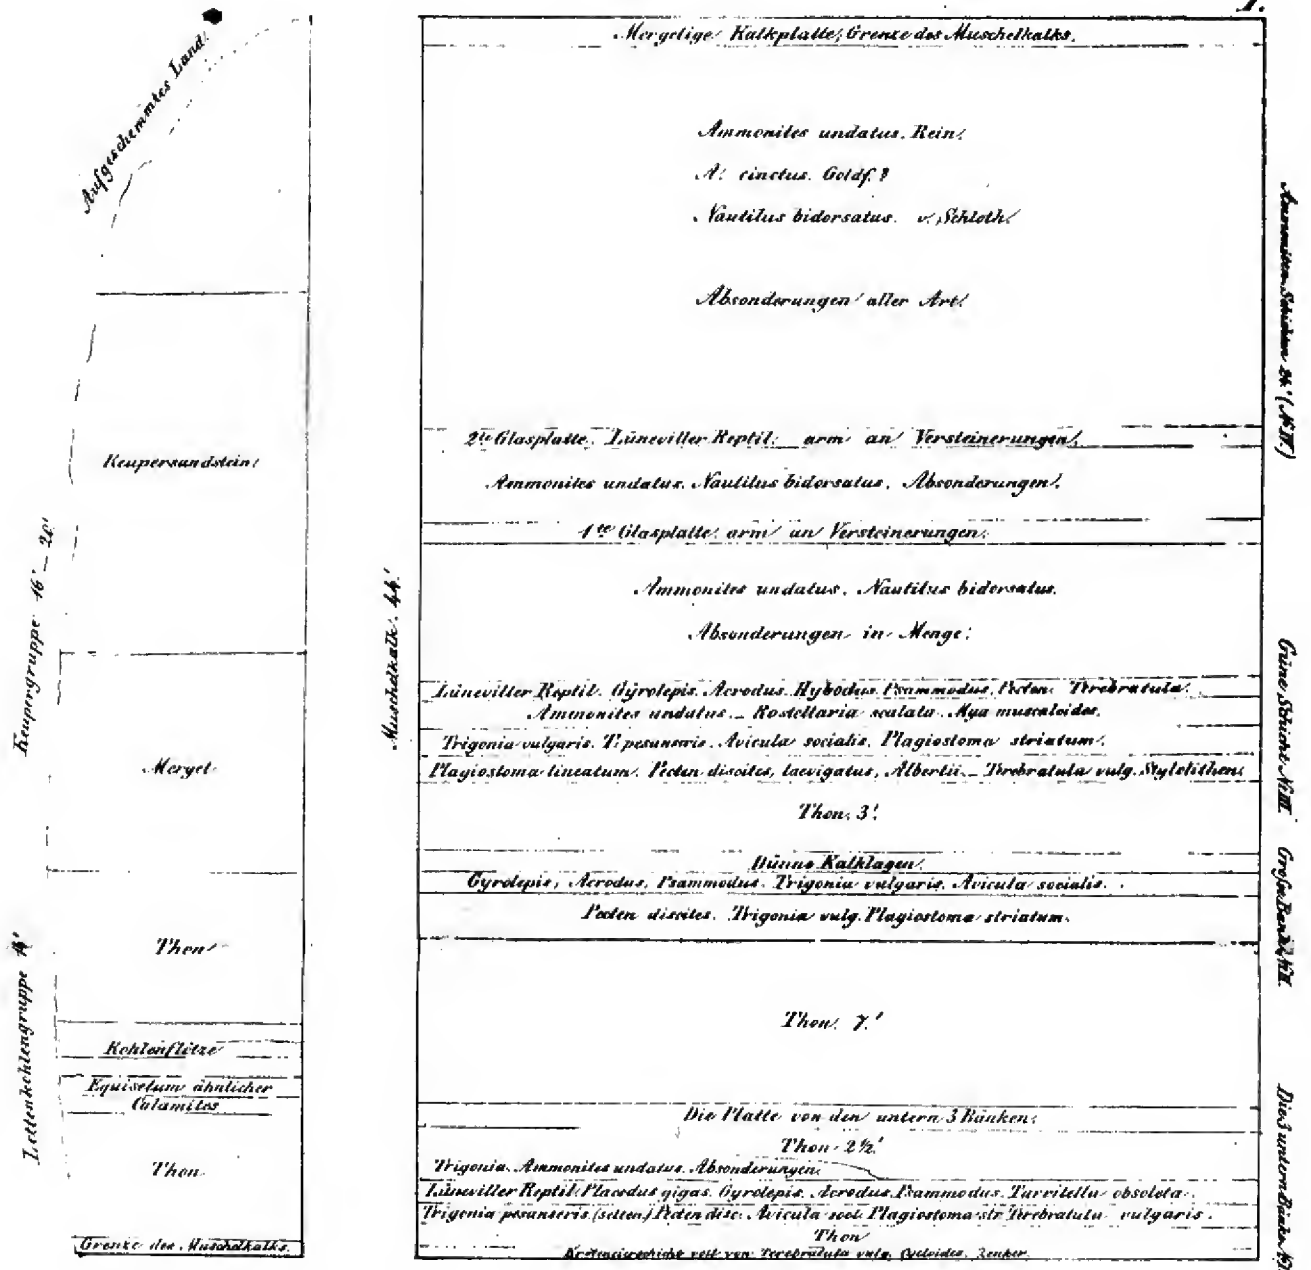 1.
Aufgeschemmtes Land.
Keupersandstein.
Keupergruppe 16'_20'
Mergel
Thon
Lettenkohlengruppe 14'
Kohlenflötze
Equisetum ähnlicher
Calamites
Thon
Grenze des Muschelkalks.
Muschelkalk. 44'
Mergelige Kalkplatte, Grenze des Muschelkalks.
Ammonites undatus. Rein.
A. cinctus. Goldf.?
Nautilus bidorsatus. v. Schloth.
Absonderungen aller Art.
2te Glasplatte. Lüneviller Reptil. arm an Versteinerungen.
Ammonites undatus. Nautilus bidorsatus. Absonderungen.
1te Glasplatte. arm an Versteinerungen.
Ammonites undatus. Nautilus bidorsatus.
Absonderungen in Menge.
Lüneviller Reptil. Gyrolepis. Acrodus. Hybodus. Psammodus. Pecten. Terebratula.
Ammonites undatus._ Rostellaria scalata. Mya musculoides.
Trigonia vulgaris. T. pesanseris. Avicula socialis. Plagiostoma striatum.
Plagiostoma lineatum. Pecten discites, laevigatus, Albertii._ Terebratula vulg. Stylolithen.
Thon. 3'.
Dünne Kalklagen.
Gyrolepis, Acrodus. Psammodus. Trigonia vulgaris. Avicula socialis.
Pecten discites. Trigonia vulg. Plagiostoma striatum.
Thon. 7.'
Die Platte von den untern 3 Bänken.
Thon 2½'
Trigonia. Ammonites undatus. Absonderungen.
Lüneviller Reptil. Placodus gigas. Gyrolepis. Acrodus. Psammodus. Turritella obsoleta.
Trigonia pesanseris (selten.) Pecten disc. Avicula soc. Plagiostoma str. Terebratula vulgaris.
Thon
voll von Terebratula vulg. Cycloides. Zenker.
Ammoniten Schichten 24' (N. IV.)
Grüne Schicht N. III.
Große Bank N. II.
Die 3 untern Bänke N. I.